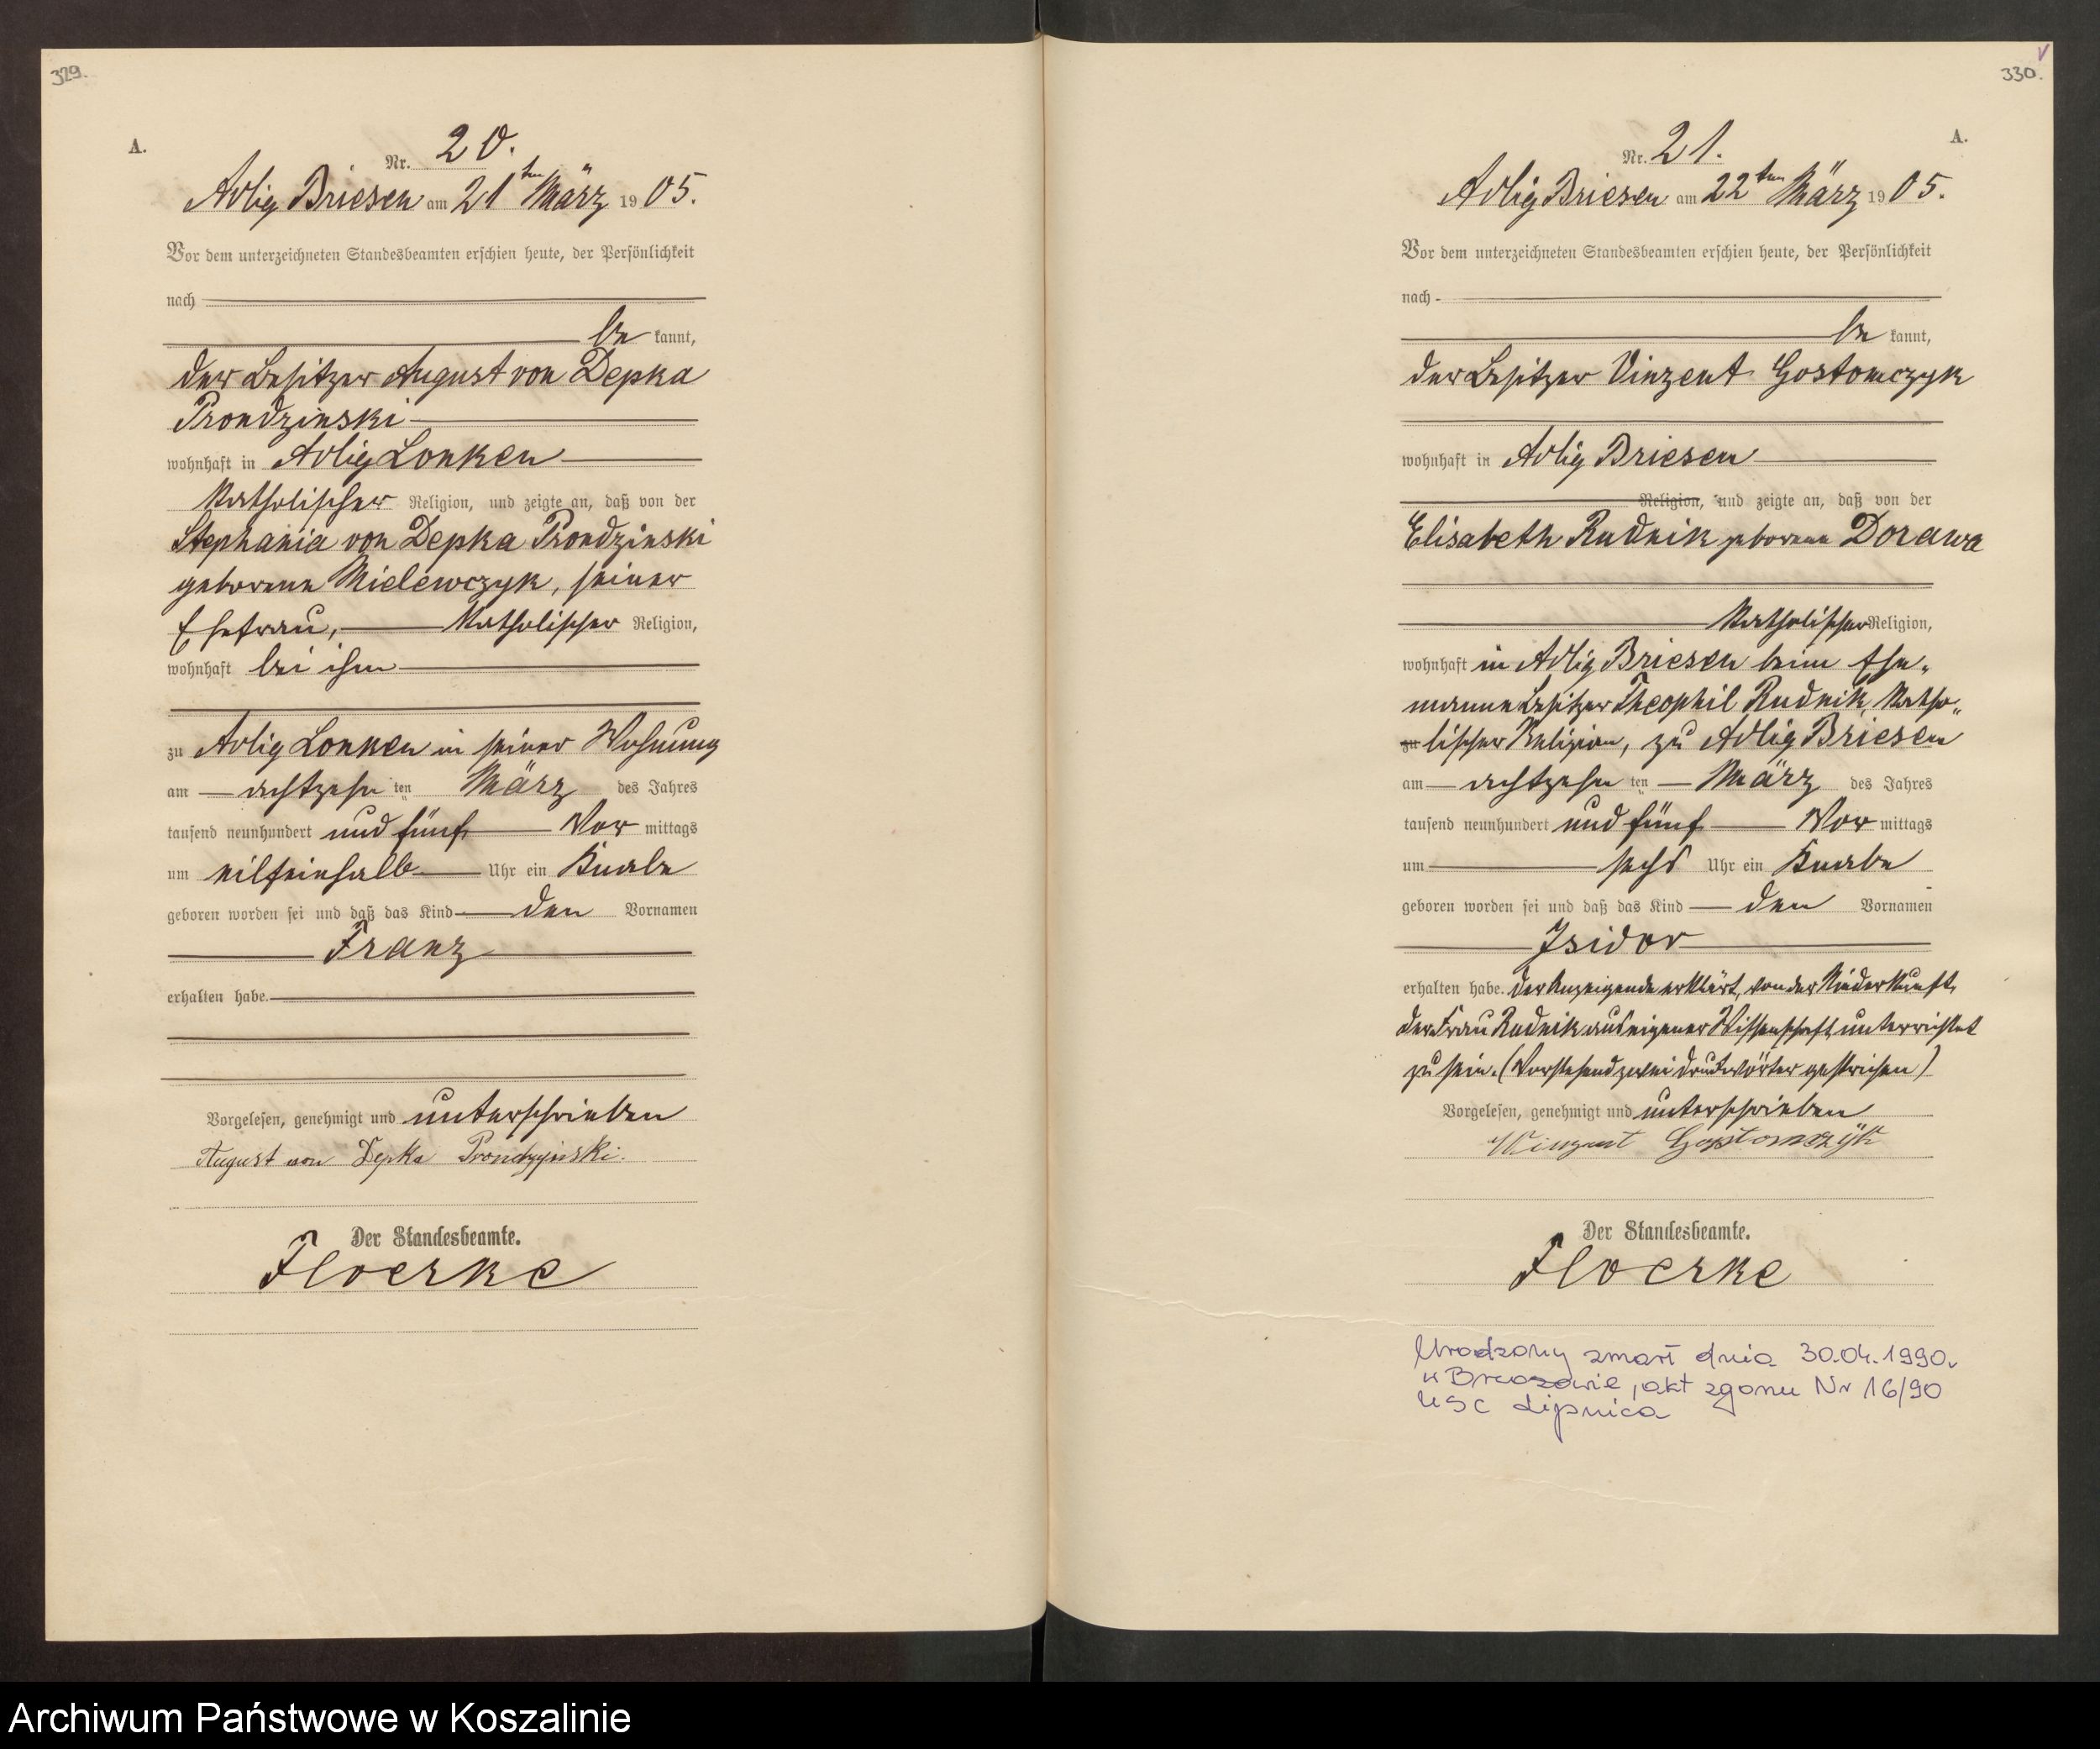 329.
A.
Nr. 20.
Adlig Briesen am 21ten März 1905.
Vor dem unterzeichneten Standesbeamten erschien heute, der Persönlichkeit
nach
be kannt,
der Besitzer August von Depka
Prondzinski
wohnhaft in Adlig Lonken
katholischer Religion, und zeigte an, daß von der
Stephania von Depka Prondzinski
geborene Mielewczyk, seiner
Ehefrau, katholischer Religion,
wohnhaft bei ihm
zu Adlig Lonken in seiner Wohnung
am achtzehn ten März des Jahres
tausend neunhundert und fünf Vor mittags
um elfeinhalb Uhr ein Knabe
geboren worden sei und daß das Kind den Vornamen
Franz
erhalten habe.
Vorgelesen, genehmigt und unterschrieben
August von Depka Prondzynski.
Der Standesbeamte.
Floerke
330.
A.
Nr. 21.
Adlig Briesen am 22ten März 1905.
Vor dem unterzeichneten Standesbeamten erschien heute, der Persönlichkeit
nach
be kannt,
der Besitzer Vinzent Gostomczyk
wohnhaft in Adlig Briesen
Religion, und zeigte an, daß von der
Elisabeth Rudnik geborene Dorawa
katholischer Religion,
wohnhaft in Adlig Briesen beim Ehe-
manne Besitzer Theophil Rudnik, katho-
zu lischer Religion, zu Adlig Briesen
am achtzehn ten März des Jahres
tausend neunhundert und fünf Vor mittags
um sechs Uhr ein Knabe
geboren worden sei und daß das Kind den Vornamen
Isidor
erhalten habe. Der Anzeigende erklärt, von der Niederkunft
der Frau Rudnik aus eigener Wissenschaft unterrichtet
zu sein. (Vorstehend zwei Druckwörter gestrichen)
Vorgelesen, genehmigt und unterschrieben
Winzent Gostomczÿk
Der Standesbeamte.
Floerke
Urodzony zmarł dnia 30.04.1990.
w , akt zgonu Nr 16/90
USC Lipnica
Archiwum Państwowe w Koszalinie